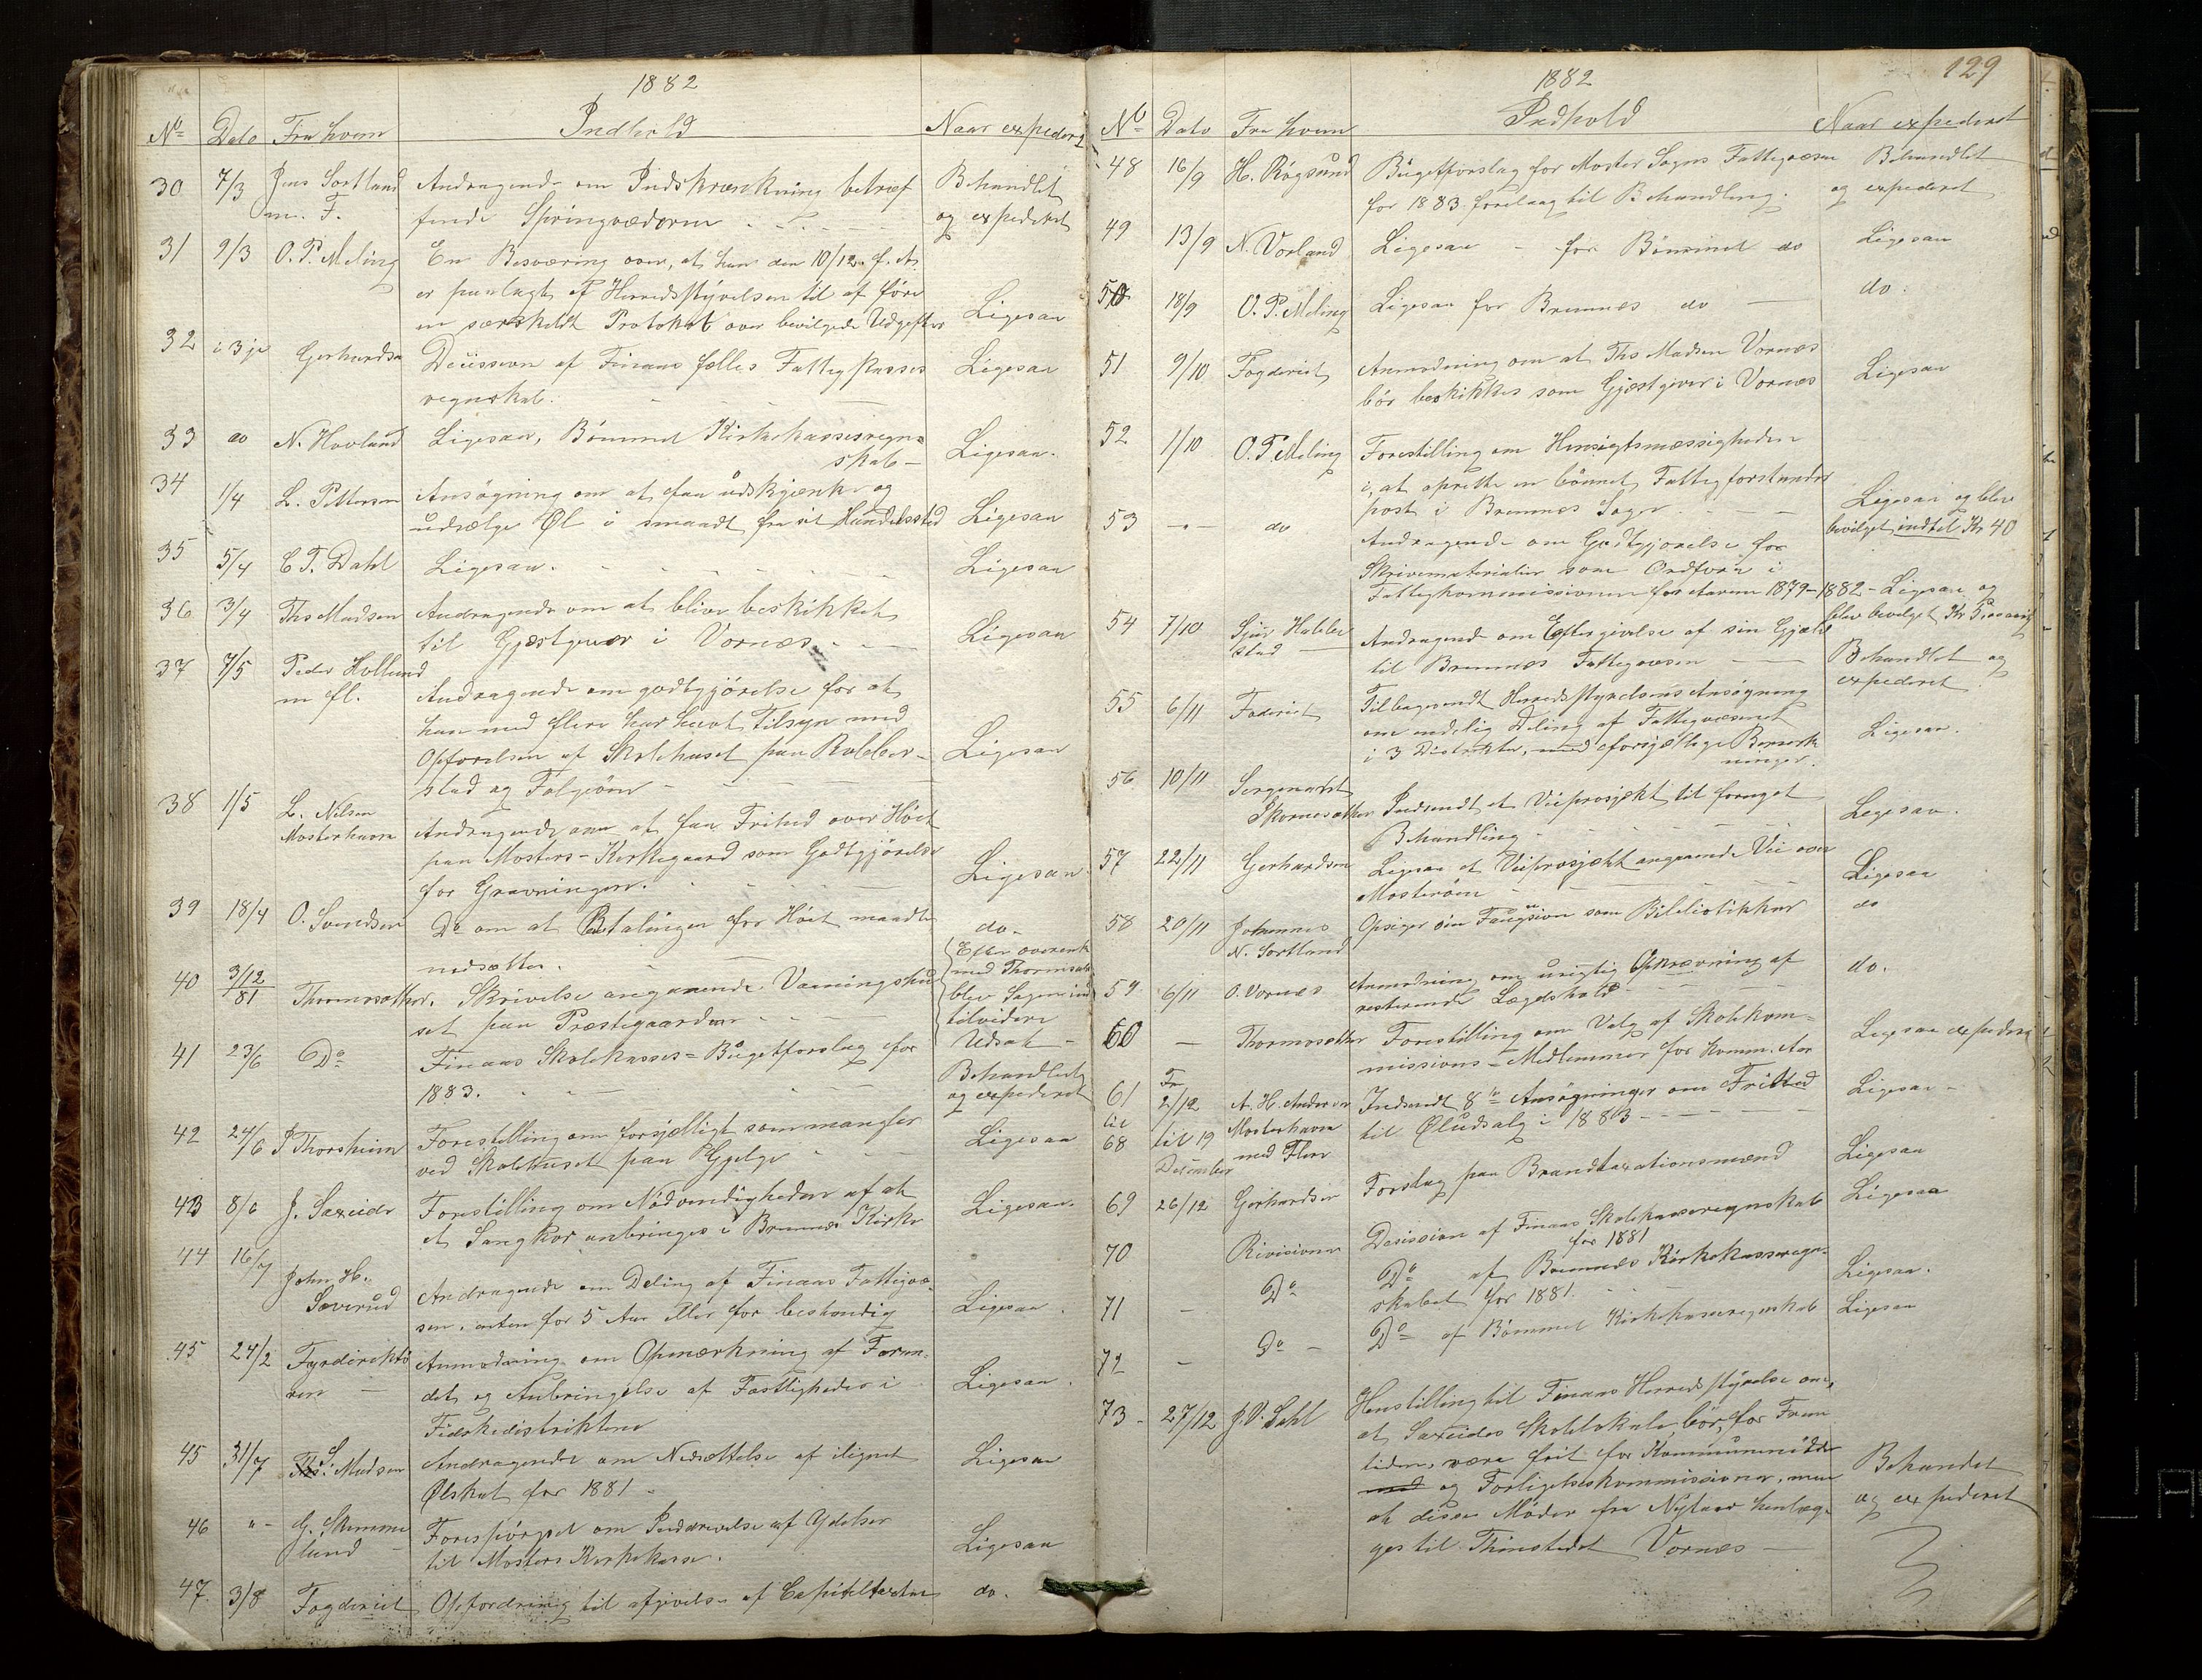 1882
No Dato Fra hvem Indhold Naar expederet
30 7/3 Jens Sortland Andragende om Indskrænkning betræf Behandlet
m. F. fende Springvæderne og expederet
31 9/3 O. P. Meling En Besværing over, at han den 10/12 f. A.
er paalagt af Herredsstyrelsen til at føre
en særskildt Protokol over bevilgede Udgifter Ligesaa
32 i 3je Gerhardsen Desission af Finaas fælles Fattigkasses Ligesaa
regnskab.
33 do N. Hovland Ligesaa, Bømmel Kirkekassesregn=
skab - Ligesaa.
34 1/4 L. Pettersen Ansøgning om at faa udskjænke og
udsælge Øl i smaadt fra sit Handelssted Ligesaa
35 5/4 C T. Dahl Ligesaa. Ligesaa
36 3/4 Ths Madsen Andragende om at blive beskikket
til Gjæstgiver i Vornæs Ligesaa
37 7/5 Peder Hollund
m fl. Andragende om godtgjörelse for at
han med flere har havt Tilsyn med
Opførelsen af Skolehuset paa Rubbe-
stad og Folgerøen Ligesaa
38 1/5 L. Nilsen
Mosterhavn Andragende om at faa Fritud over Höet
paa Mosters-Kirkegaard som Godtgjörelse
for Gravningen. Ligesaa.
39 18/4 O. Svendsen Do om at Betalingen for Höet maatte do.
nedsættes.
40 3/12 81 Thormosæther. Skrivelse angaaende Vaaningshu
set paa Præstegaarden
Efter overensk
med Thormosæt
blev Sagen ind
tilvidere
Udsat -
41 23/6 Do Finaas Skolekasses=Bügetforslag for
1883. Behandlet
og expederet
42 24/6 P Thorsheim Forestilling om forsjælligt som mangler
ved Skolehuset paa Gjelge Ligesaa
43 8/6 J. Saxeide Forestilling om Nödvendigheden af at
et Sangkor anbringes i Bremnes Kirke Ligesaa.
44 16/7 John H.
Søverud Andragende om Deling af Finaas Fattigvæ-
sen, enten for 5 Aar eller for bestandig Ligesaa.
45 24/2 Fyrdirektö
ren - Anmodning om Opmærkning af Farvan-
det og Anbringelse af Fastligheder i
Fiskedistrikterne Ligesaa.
45 31/7 S. Madsen Andragende om Nedsættelse af ilignet
Ølskat for 1881 - Ligesaa
46 "- G. Skimme
lund - Forespörgsel om Inddrivelse af Ydelser
til Mosters Kirkekasse. Ligesaa
47. 3/8 Fogderiet Opfordring til afgivelse af Capiteltaxten do.
129
1882
No Dato Fra hvem Indhold Naar expederet
48 16/9 H. Røgsund Bügetforslag for Moster Sogns Fattigvæsen Behandlet
for 1883 forelaag til Behandling. og expederet
49 13/9 N. Vorland Ligesaa - for Bømmel do Ligesaa
50 18/9 O. P. Meling Ligesaa for Bremnes do - do.
51 9/10 Fogderiet Anmodning om at Ths Madsen Vornæs
bör beskikkes som Gjæstgiver i Vornæs Ligesaa
52 1/10 O. P. Meling Forestilling om Hensigtsmæssigheden
i, at oprette en lönnet Fattigforstander
post i Bremnes Sogn. Ligesaa og blev
bevilget indtil Kr 40
53 -"- do Andragende om Godtgjörelse for
Skrivematerialier som Ordförer i
Fattigkommissionen for Aarene 1879-1882 - Ligesaa og
blev bevilget Kr 5
54 7/10 Sjur Hable
stad - Andragende om Eftergivelse af sin Gjæld
til Bremnes Fattigvæsen Behandlet og
expederet.
55 6/11 Foderiet Tilbagesendt Herredsstyrelsens Ansøgning
om endelig Deling af Fattigvæsenet
i 3 Distrikter, med forsjællige Bemærk
ninger. Ligesaa.
56 10/11 Sergemadst
Skornesæther Indsendt et Veiprosjekt til foreget
Behandling Legesaa.
57 22/11 Gerhardsen Ligesaa et Veiprosjekt angaaende Vei over
Mosterøen Ligesaa
58 20/11 Johannes
N. Sortland Opsiger sin Fungsion som Bibliotikkar do
59 6/11 O. Vornæs Anmodning om urigtig Opkrævning af
resterende Lægdshold do.
60 - Thormosæther Forestilling om Valg af Skolekom-
missions-Medlemmer for komm. Aar Legesaa expedera
61 Fra 2/12 A. H. Andersen Indsendt 8te Ansøgninger om Frihed Ligesaa -
til Mosterhavn til Øludsalg i 1883
68 til 19 med Flere
Desember
69 26/12 Gerhardsen Forslag paa Brandtaxationsmænd Ligesaa
70 Rivisionen Desission af Finaas Skolekasseregnskab
for 1881 Ligesaa
71 - Do Do af Bremnes Kirkekasseregn-
skabet for 1881. Ligesaa.
72 - Do - Do af Bömmel Kirkekasseregnskab Ligesaa
73- 27/12 J. V. Dahl Henstilling til Finaas Herredsstyrelse om,
at Saxeides Skolelokale bör, for Frem
tiden, være frit for Kommunemöder
med og Forligelseskommissioner, men
at disse Möder fra Nytaar henlæg-
ges til Thinstedet Vornæs - Behandet
og expederet